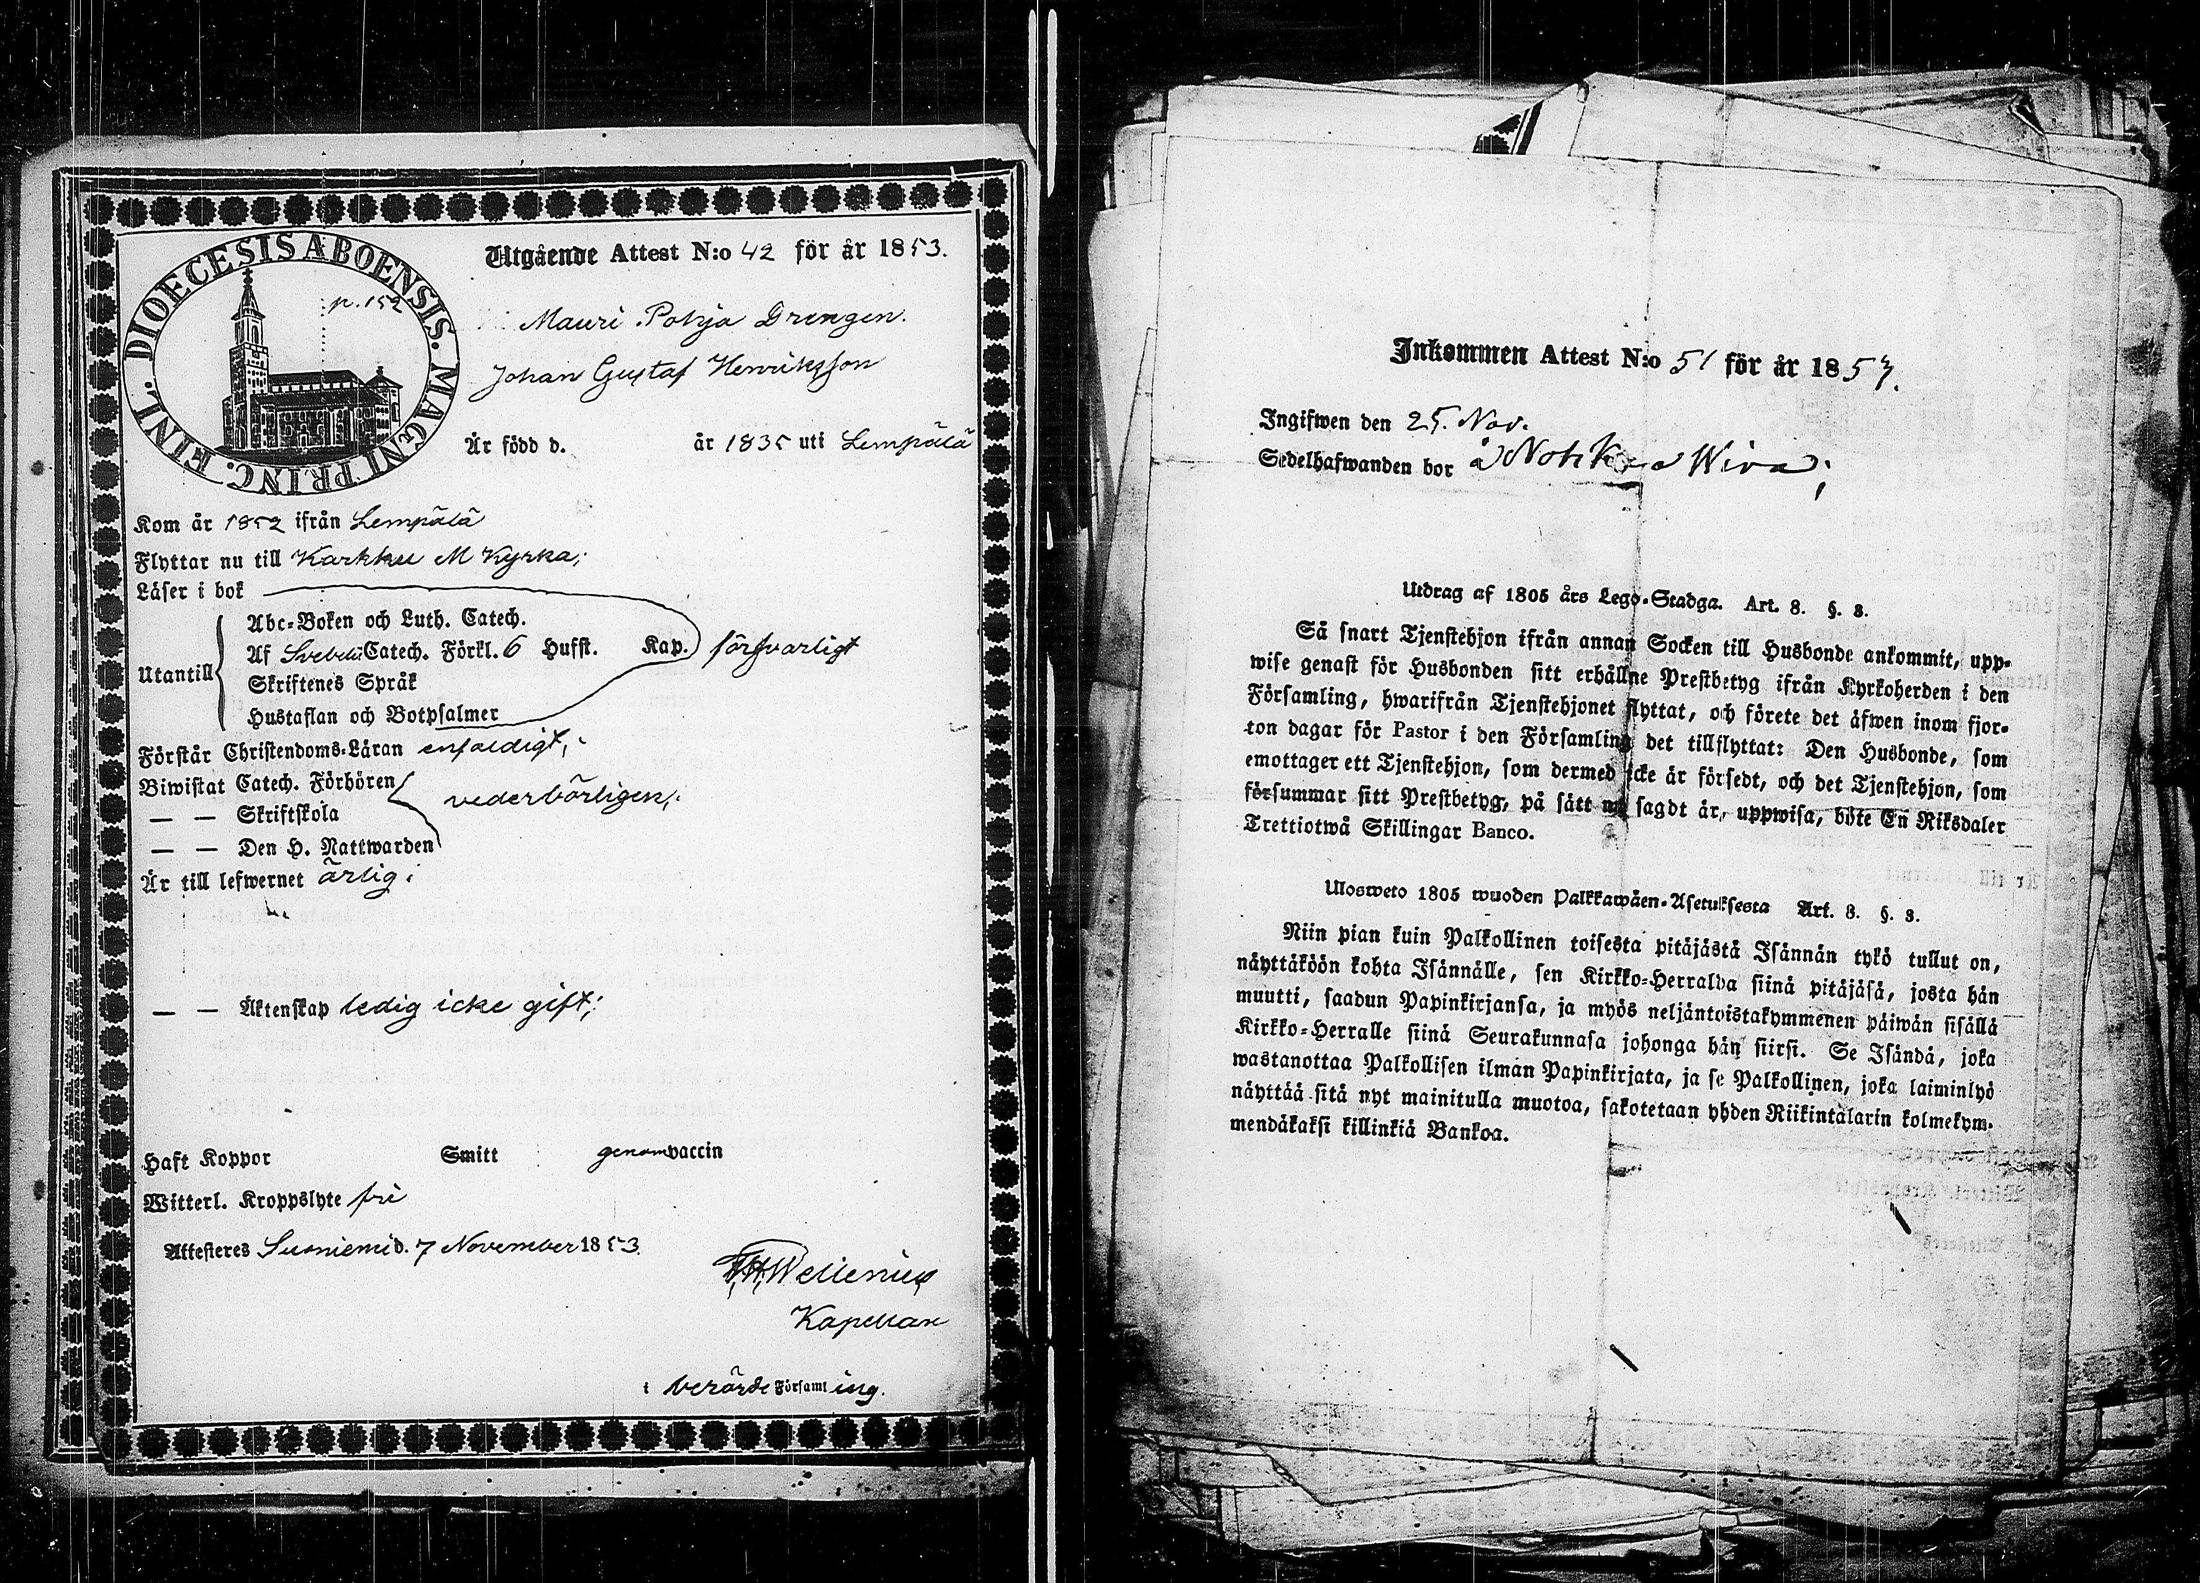 DIOECESIS ABOENSIS. MAGNI PRINC. FINL.
p. 152
Utgående Attest N:o 42 för år 1853.
Mauri Pohja Drengen.
Johan Gustaf Henriksson
Är född d. år 1835 uti Lempälä
Kom år 1852 ifrån Lempälä
Flyttar nu till Karkku M Kyrka;
Läser i bok
Abc-Boken och Luth. Catech.
Af Svebeli Catech. Förkl. 6 Hufst. Kap. försvarligt
Utantill
Skriftenes Språk
Hustaflan och Botpsalmer
Förstår Christendoms-Läran enfaldigt;
Biwistat Catech. Förhören
— — Skriftskola vederbörligen;
— — Den H. Nattwarden
Är till lefwernet ärlig;
— — Äktenskap ledig icke gift;
Haft Koppor Smitt genom vaccin
Witterl. Kroppslyte fri
Attesteres Suoniemi d. 7 November 1853.
Wellenius
Kapellan
i berörde Församling.
Inkommen Attest N:o 51 för år 1853.
Ingifwen den 25. Nov.
Sedelhafwanden bor å Wira;
Utdrag af 1805 års Lego-Stadga. Art. 8. §. 3.
Så snart Tjenstehjon ifrån annan Socken till Husbonde ankommit, upp-
wise genast för Husbonden sitt erhållne Prestbetyg ifrån Kyrkoherden i den
Församling, hwarifrån Tjenstehjonet flyttat, och förete det äfwen inom fjor-
ton dagar för Pastor i den Församling det tillflyttat: Den Husbonde, som
emottager ett Tjenstehjon, som dermed icke är försedt, och det Tjenstehjon, som
försummar sitt Prestbetyg, på sätt nu sagdt är, uppwisa, böte En Riksdaler
Trettiotwå Skillingar Banco.
Ulosweto 1805 wuoden Palkkawäen-Asetuksesta Art. 8. §. 3.
Niin pian kuin Palkollinen toisesta pitäjästä Isännän tykö tullut on,
näyttäköön kohta Isännälle, sen Kirkko-Herralda siinä pitäjäsä, josta hän
muutti, saadun Papinkirjansa, ja myös neljäntoistakymmenen päiwän sisällä
Kirkko-Herralle siinä Seurakunnasa johonga hän siirsi. Se Isändä, joka
wastanottaa Palkollisen ilman Papinkirjata, ja se Palkollinen, joka laiminlyö
näyttää sitä nyt mainitulla muotoa, sakotetaan yhden Riikintalarin kolmekym-
mendäkaksi killinkiä Bankoa.